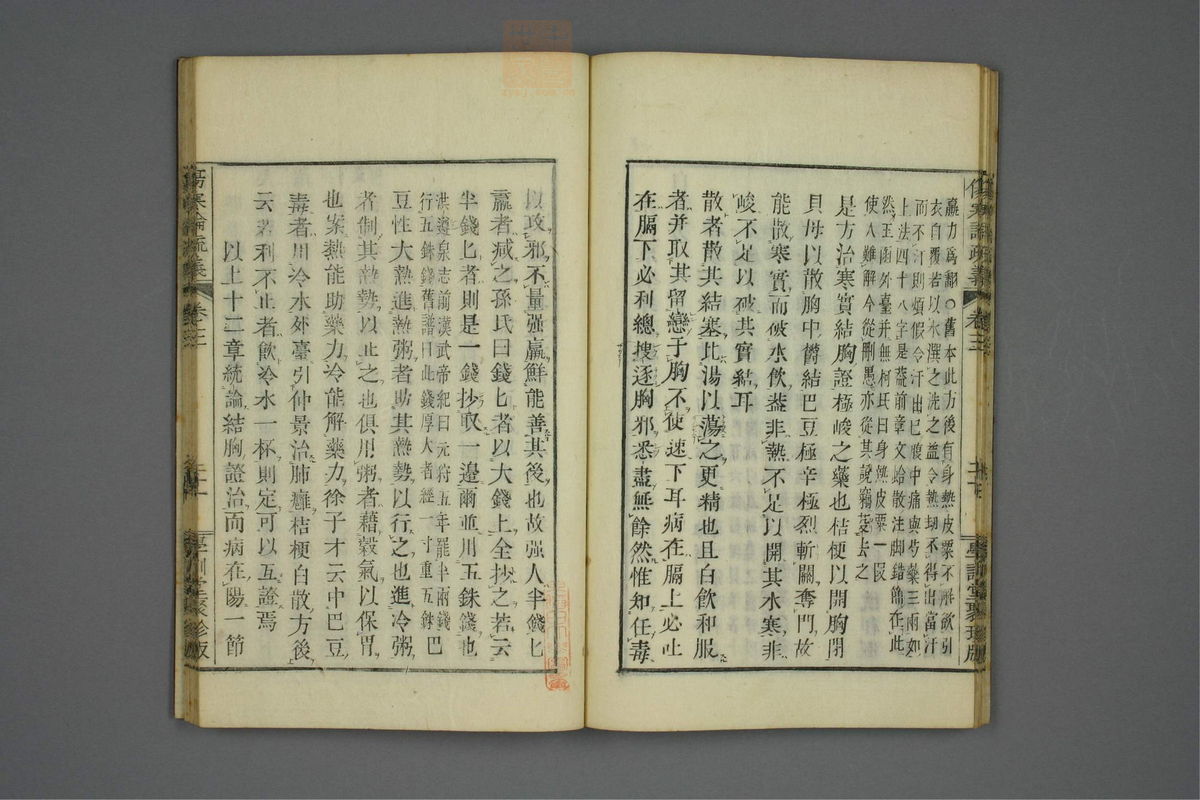 羸力爲翻○舊本此方後有身熱皮粟不解欲引
衣自覆若以水潠之洗之益令熱却不得出當汗
而不汗則煩假令汗出已腹中痛與芍藥三兩如
上法四十八字是蓋前章文蛤散注脚錯簡在此
然玉函外臺并無柯氏曰身熱皮粟一段
使人難解今從刪愚亦從其說竊芟去之
是方治寒實結胸證極峻之藥也桔梗以開胸閉
貝母以散胸中鬱結巴豆極辛極烈斬關奪門故
能散寒實而破水飲葢非熱不足以開其水寒非
峻不足以破其實結耳
散者散其結塞此湯以蕩之更精也且白飲和服
者并取其留戀于胸不使速下耳病在膈上必吐
在膈下必利總搜逐胸邪悉盡無餘然惟知任毒
以攻邪不量强羸鮮能善其後也故强人半錢匕
羸者減之孫氏曰錢匕者以大錢上全抄之若云
半錢匕者則是一錢抄取一邊爾並用五銖錢也
洪遵泉志前漢武帝紀曰元狩五年罷半兩錢
行五銖錢舊譜曰此錢厚大者經一寸重五銖
巴
豆性大熱進熱粥者助其熱勢以行之也進冷粥
者制其熱勢以止之也俱用粥者藉穀氣以保胃
也案熱能助藥力冷能解藥力徐子才云中巴豆
毒者用冷水外臺引仲景治肺癰桔梗白散方後
云若利不止者飲冷水一杯則定可以互證焉
以上十二章統論結胸證治而病在陽一節
傷寒論疏義
卷三
傷寒論疏義
卷三